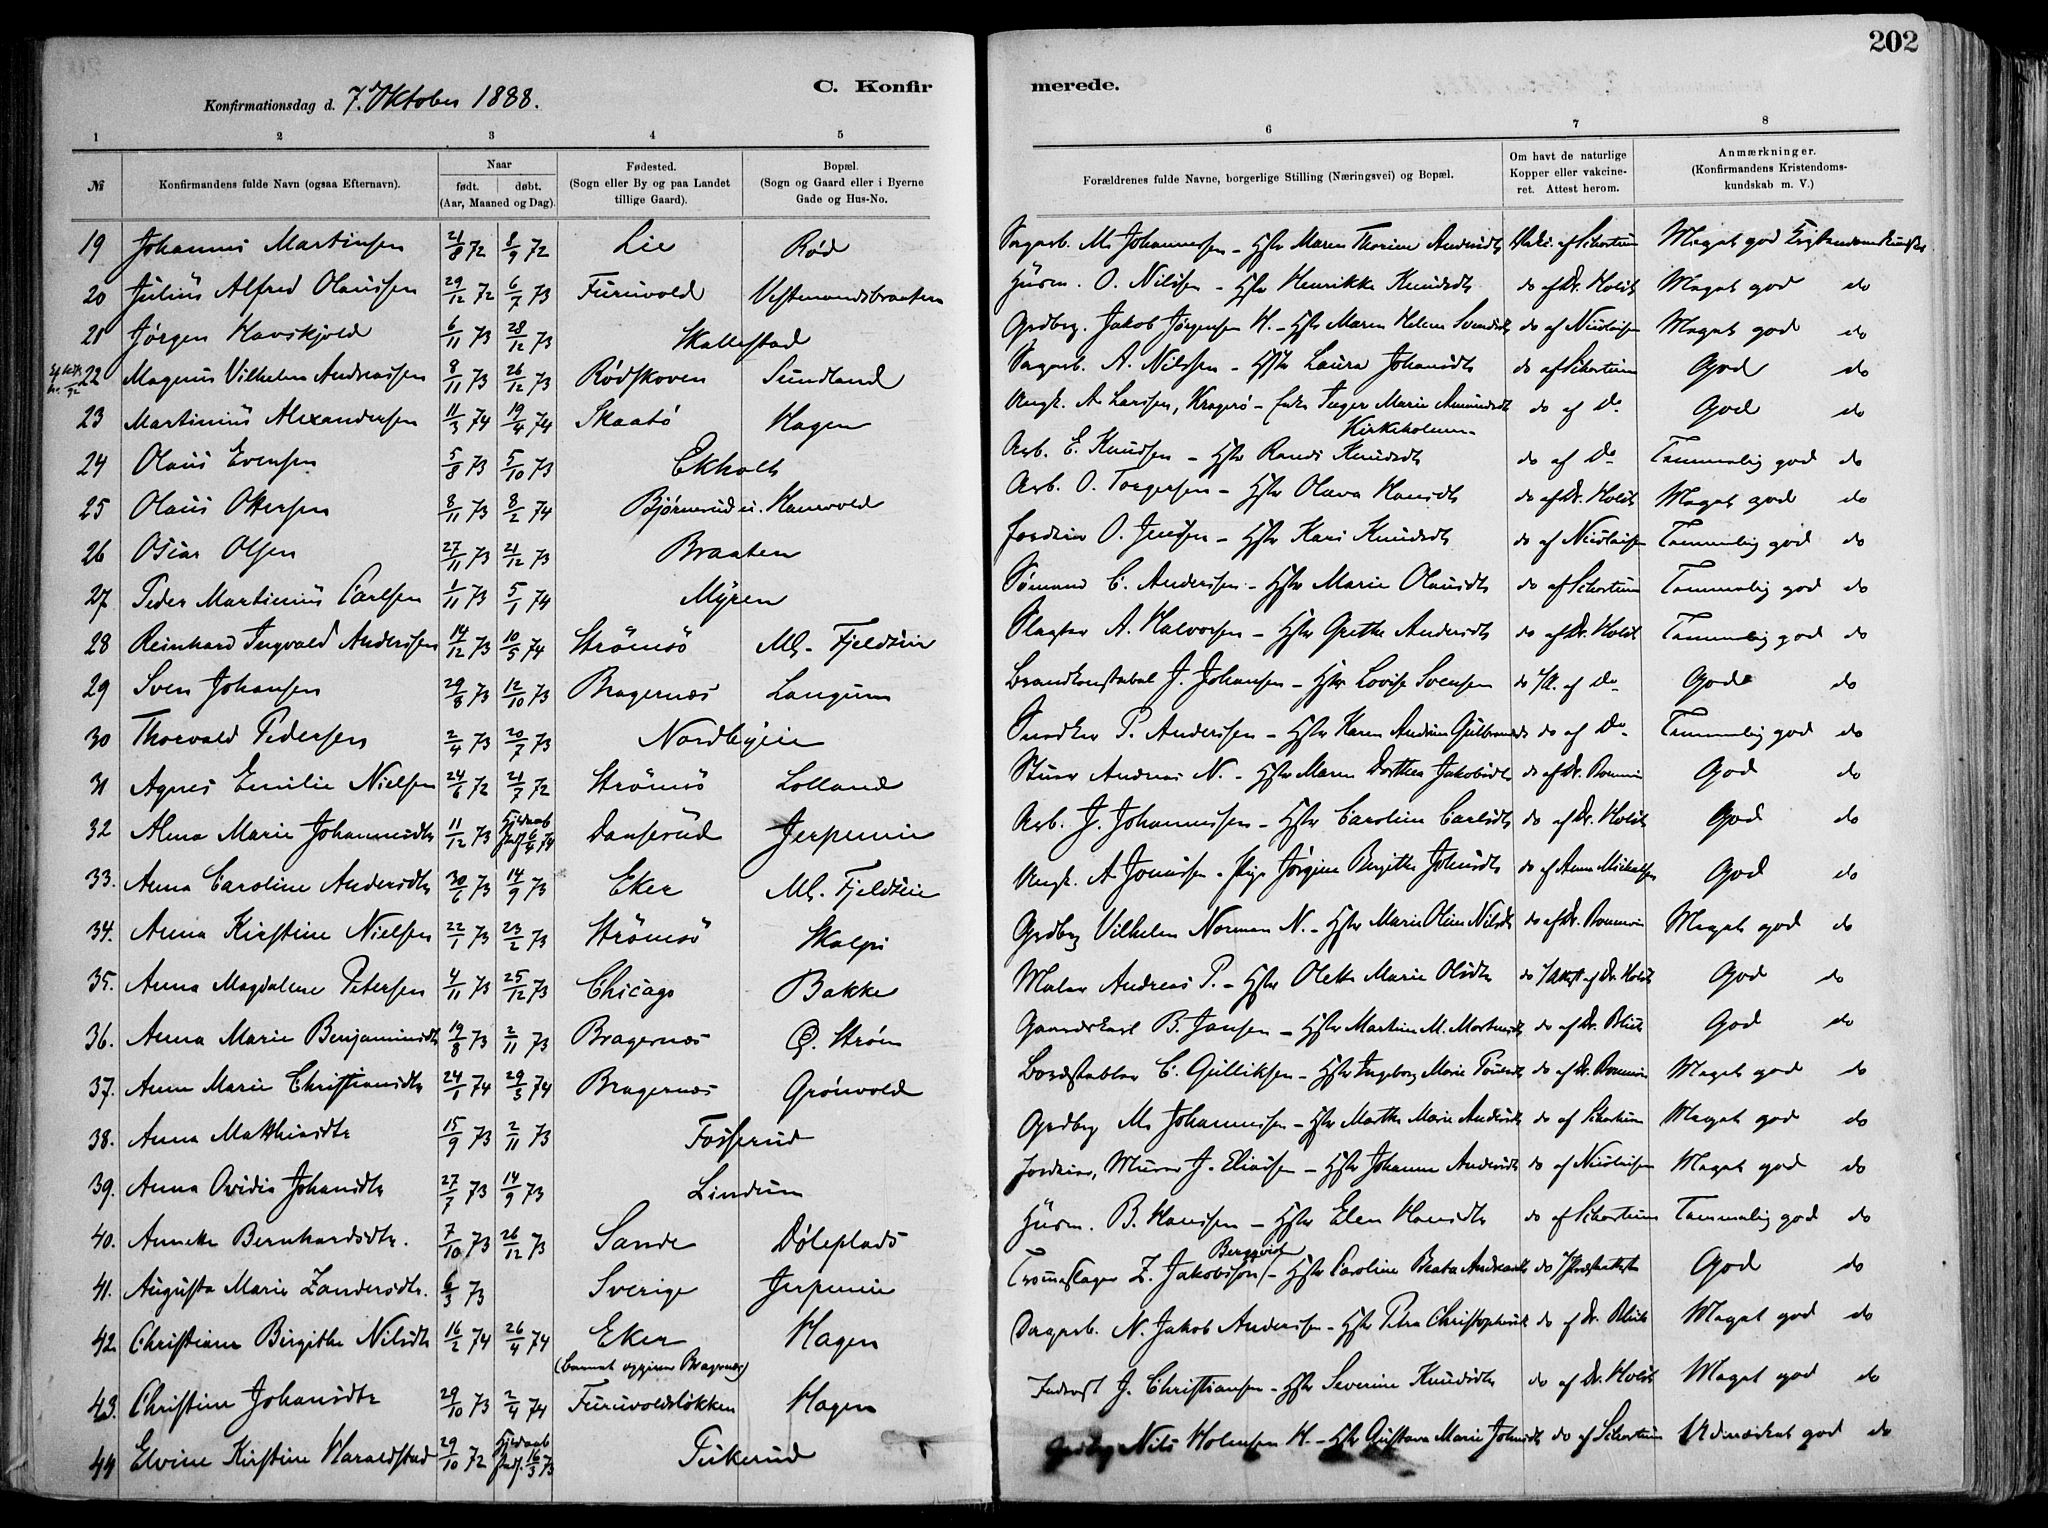 202
C. Konfirmerede.
Konfirmationsdag d. 7.de Oktober 1888.
1 2 3 4 5 6 7 8
№ Konfirmandens fulde Navn (ogsaa Efternavn). Naar født. døbt. (Aar, Maaned og Dag). Fødested. (Sogn eller By og paa Landet tillige Gaard). Bopæl. (Sogn og Gaard eller i Byerne Gade og Hus-No. Forældrenes fulde Navne, borgerlige Stilling (Næringsvei) og Bopæl. Om havt de naturlige Kopper eller vakcineret. Attest herom. Anmærkninger. (Konfirmandens Kristendomskundskab m. V.)
19 Johannes Martinsen 21/8 72 8/9 72 Lie Rød Sagarb. M. Johannessen - Hstr Maren Thorine Andersdtr Vakc. af Schortum Meget god Kristendomskundsk.
20 Julius Alfred Olaussen 29/12 72 6/7 73 Furuvold Vestmandsbraaten Husm. O. Nilssen - Hstr Henrikke Knudsdtr do af Dr. Holst Meget god do
21 Jørgen Havskjold 6/11 73 28/12 73 Skallestad Grdbrg. Jakob Jørgensen H. - Hstr Maren Helene Svendsdtr do af Nicolaisen Meget god do
22 Magnus Vilhelm Andreassen 8/11 73 26/12 73 Rødskoven Sundland Sagarb. A. Nilssen - Hstr Laura Johansdtr do af Schortum God do
23 Martinius Alexandersen 11/3 74 19/4 74 Skaatø Hagen Ungk. A. Larssen, Kragerø - Enke Inger Marie Amundsdtr Kirkeholmen do af Do God do
24 Olaus Evensen 5/8 73 5/10 73 Ekholt Arb. E. Knudsen - Hstr Randi Knudsdtr do af Do Temmelig god do
25 Olaus Ottersen 8/11 73 8/2 74 Bjørnerud u. Hanevold Arb. O. Torgersen - Hstr Olava Hansdtr do af Dr. Holst Meget god do
26 Oscar Olsen 27/11 73 21/12 73 Braaten Jordeier O. Jensen - Hstr Kari Knudsdtr do af Nicolaisen Temmelig god do
27 Peder Martinius Carlsen 1/11 73 5/1 74 Myren Sømand C. Anderssen - Hstr Marie Olausdtr do af Schortum Temmelig god do
28 Reinhard Ingvald Anderssen 14/12 73 10/5 74 Strømsø Ml. Fjeldsein Slagter A. Halvorsen - Hstr Grethe Andersdtr do af Dr. Holst Temmelig god do
29 Sven Johansen 29/8 73 12/10 73 Bragernæs Langum Brandkonstabel J. Johansen - Hstr Lovise Svensen do af Do God do
30 Thorvald Pedersen 2/4 73 20/7 73 Nordbyeie Snedker P. Anderssen - Hstr Karen Andrine Gulbransds do af Do Temmelig god do
31 Agnes Emilie Nielsen 24/6 72 21/7 72 Strømsø Lolland Stuer Andreas N. - Hstr Maren Dorthea Jakobsdtr do af Dr. God do
32 Alma Marie Johannesdtr 11/12 73 Hjdøb stadf. 6/4 74 Danserud Jerpemie Arb. J. Johannessen - Hstr Caroline Carlsdtr do af Dr. Holst God do
33. Anna Caroline Andersdtr 30/6 73 14/9 73 Eker Ml. Fjeldsein Ungk. A. - Pige Jørgine Birgithe Johnsdtr do af Anne Michelsen God do
34. Anna Kirstine Nielsen 22/1 73 23/2 73 Strømsø Skalpi Grdbrg Vilhelm Norman N. - Hstr Marie Oline Nilsdtr do af Dr. Meget god do
35. Anna Magdalene Petersen 4/11 73 25/12 73 Chicago Bakke Maler Andreas P. - Hstr Olette Marie Olsdtr do af Dr. Holst God do
36. Anna Marie Benjaminsdtr 19/8 73 2/11 73 Bragernæs G. Strøm Gaardskarl B. Jansen - Hstr Martine M. Mortensdtr do af Dr. God do
37. Anne Marie Christiansdtr 24/1 74 29/3 74 Bragernæs Grønvold Bordstabler C. Gulliksen - Hstr Ingeborg Marie do af Dr. Meget god do
38. Anna Matthiasdtr 15/9 73 2/11 73 Fosserud Grdbrg M. Johannessen - Hstr Marthe Marie Andersdtr do af Schortum Meget god do
39. Anna Ovidia Johansdtr 27/7 73 14/9 73 Lindum Jordeier, Murer J. Eliassen - Hstr Johanne Andersdtr do af Nicolaisen Meget god do
40. Annette Bernhardsdtr. 7/10 73 26/12 73 Sande Døleplads Husm. B. Hansen - Hstr Elen Hansdtr do af Schortum Temmelig god do
41. Augusta Marie Zandersdtr. 6/3 73 Sverige Jerpemie Z. Jakobsson Bergqvist - Hstr Caroline Beata do God do
42. Christiane Birgithe Nilsdtr 16/2 74 26/4 74 Eker (barnet opgiver Bragernæs) Hagen Dagarb. N. Jakob Anderssen - Hstr Petra do af Dr. Meget god do
43. Christine Johansdtr 29/10 73 2/4 74 Furuvoldsløkken Hagen Inderst J. Christiansen - Hstr Severine Knudsdtr do af Dr. Holst Meget god do
44 Elvine Kirstine Haraldstad 29/10 72 Hjdøb stadf. 16/3 73 Tukerud Grdbrg Nils Holmsen H. - Hstr Gustava Marie Johnsdtr do af Schortum Udmærket god do